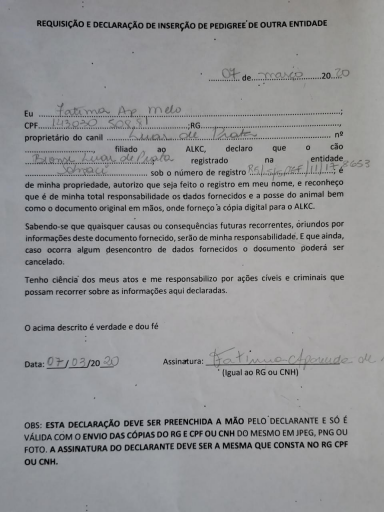 REQUISIÇÃO E DECLARAÇÃO DE INSERÇÃO DE PEDIGREE DE OUTRA ENTIDADE
07 de março 2020
Eu Fatima Ap. Melo;
CPF ;RG
proprietário do canil Luar de Prata nº
, filiado ao ALKC, declaro que o cão
Luar de Prata registrado na entidade
sob o número de registro ; é
de minha propriedade, autorizo que seja feito o registro em meu nome, e reconheço
que é de minha total responsabilidade os dados fornecidos e a posse do animal bem
como o documento original em mãos, onde forneço a cópia digital para o ALKC.
Sabendo-se que quaisquer causas ou consequências futuras recorrentes, oriundos por
informações deste documento fornecido, serão de minha responsabilidade. E que ainda,
caso ocorra algum desencontro de dados fornecidos o documento poderá ser
cancelado.
Tenho ciência dos meus atos e me responsabilizo por ações cíveis e criminais que
possam recorrer sobre as informações aqui declaradas.
O acima descrito é verdade e dou fé
Data: 07/03/2020 Assinatura: Fatima Aparecida de
(Igual ao RG ou CNH)
OBS: ESTA DECLARAÇÃO DEVE SER PREENCHIDA A MÃO PELO DECLARANTE E SÓ É
VÁLIDA COM O ENVIO DAS CÓPIAS DO RG E CPF OU CNH DO MESMO EM JPEG, PNG OU
FOTO. A ASSINATURA DO DECLARANTE DEVE SER A MESMA QUE CONSTA NO RG CPF
OU CNH.